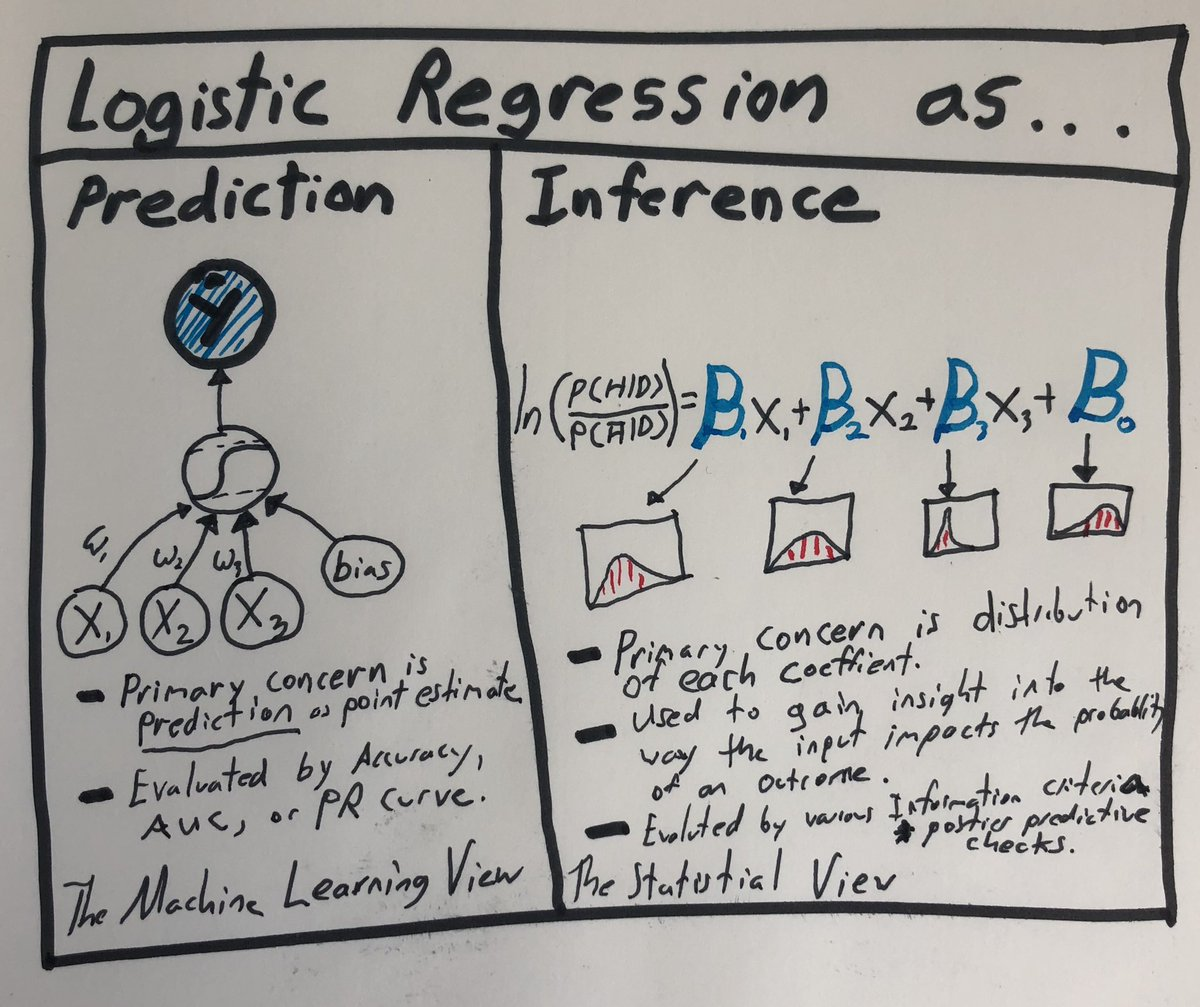 Logistic Regression as...
Prediction
ŷ
ω₁ ω₂ ω₃ bias
X₁ X₂ X₃
- Primary concern is
prediction as point estimate
- Evaluated by Accuracy,
AUC, or PR curve.
The Machine Learning View
Inference
ln(P(H|D)/P(H̅|D)) = B₁X₁ + B₂X₂ + B₃X₃ + B₀
- Primary concern is distribution
of each coeffient.
- used to gain insight into the
way the input impacts the probablity
of an outcome.
- Evoluted by various Information criteria
postier predictive
checks.
The Statistial View